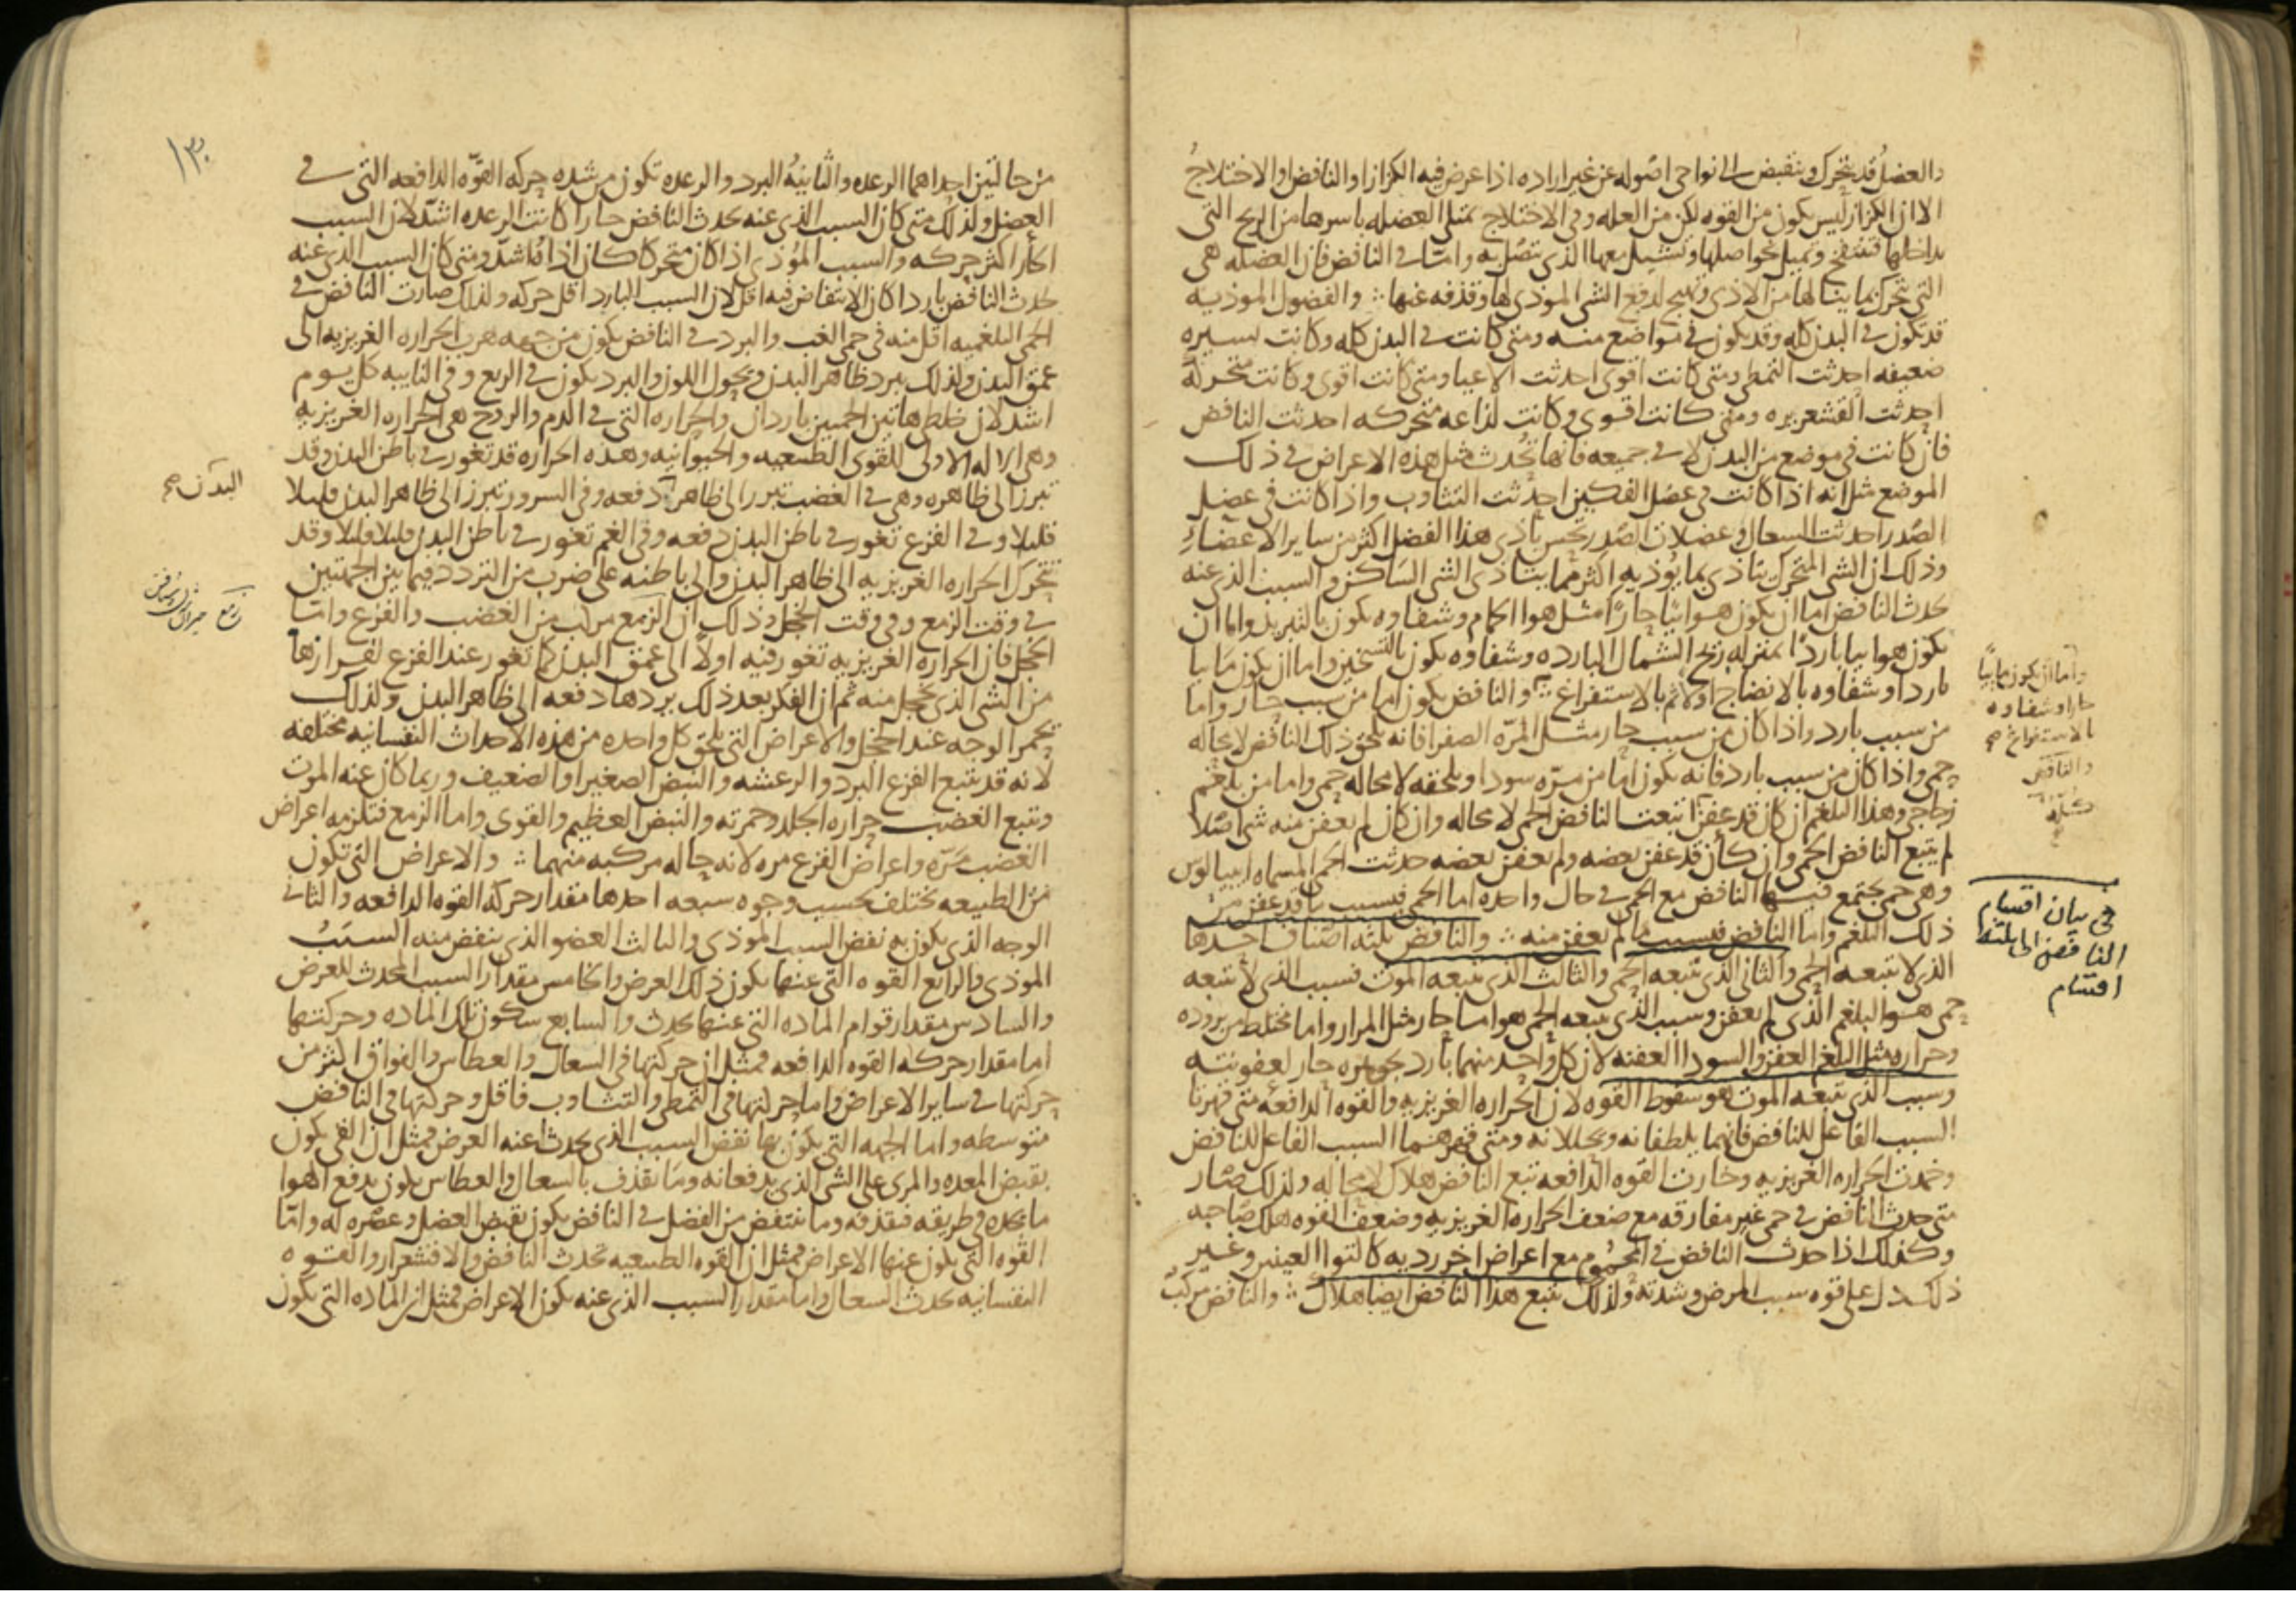 والعضل قد يتحرك وينقبض الى نواحى اصوله عن غير اراده اذا عرض فيه الكزاز او النافض او الاختلاج
الا ان الكزاز ليس يكون من القوه لكن من العله وفى الاختلاج تمتلى العضله باسرها من الريح التى
بداخلها فتنتفخ وتميل نحو اصلها وتشيل معها الذى تتصل به واما فى النافض فان العضله هى
التى تتحرك بما ينالها من الاذى وتهيج لدفع الشى الموذى لها وقذفه عنها والفضول الموذيه
قد تكون فى البدن كله وقد تكون فى مواضع منه ومتى كانت فى البدن كله وكانت يسيره
ضعيفه احدثت التمطى ومتى كانت اقوى احدثت الاعيا ومتى كانت اقوى وكانت متحركه
احدثت القشعريره ومتى كانت اقوى وكانت لذاعه متحركه احدثت النافض
فان كانت فى موضع من البدن لا فى جميعه فانها تحدث مثل هذه الاعراض فى ذلك
الموضع مثل انه اذا كانت فى عضل الفكين احدثت التثاوب واذا كانت فى عضل
الصدر احدثت السعال وعضلات الصدر تحس باذى هذا الفضل اكثر من ساير الاعضاء
وذلك ان الشى المتحرك يتاذى بما يوذيه اكثر مما يتاذى الشى الساكن والسبب الذى عنه
يحدث النافض اما ان يكون هوائيا حارا مثل هوا الحمام وشفاوه يكون بالتبريد واما ان
يكون هوائيا باردا بمنزله ريح الشمال البارده وشفاوه يكون بالتسخين واما ان يكون مائيا
باردا وشفاوه بالانضاج اولا ثم بالاستفراغ والنافض يكون اما من سبب حار واما
من سبب بارد واذا كان من سبب حار مثل المره الصفرا فانه يلحق ذلك النافض لا محاله
حمى واذا كان من سبب بارد فانه يكون اما من مره سودا ويلحقه لا محاله حمى واما من بلغم
زجاجى وهذا البلغم ان كان قد عفن اتبعت النافض الحمى لا محاله وان كان لم يعفن منه شى اصلا
لم يتبع النافض الحمى وان كان قد عفن بعضه ولم يعفن بعضه حدثت الحمى المسماه ايبيالوس
وهى حمى يجتمع فيها النافض مع الحمى فى حال واحده اما الحمى فبسبب ما قد عفن من
ذلك البلغم واما النافض فبسبب ما لم يعفن منه والنافض ثلثه اصناف احدها
الذى لا تتبعه الحمى والثانى الذى تتبعه الحمى والثالث الذى يتبعه الموت فسبب الذى لا تتبعه
حمى هو البلغم الذى لم يعفن وسبب الذى تتبعه الحمى هو اما حار مثل المرار واما مختلط من بروده
وحراره مثل البلغم العفن والسودا العفنه لان كل واحد منهما بارد بجوهره حار لعفونته
وسبب الذى يتبعه الموت هو سقوط القوه لان الحراره الغريزيه والقوه الدافعه متى قهرتا
السبب الفاعل للنافض فانهما يلطفانه ويحللانه ومتى قهرهما السبب الفاعل للنافض
وخمدت الحراره الغريزيه وخارت القوه الدافعه تبع النافض هلاك لا محاله ولذلك صار
متى حدث النافض فى حمى غير مفارقه مع ضعف الحراره الغريزيه وضعف القوه هلك صاحبه
وكذلك اذا حدث النافض فى المحموم مع اعراض اخر رديه كالتوا العينين وغير
ذلك دل على قوه سبب المرض وشدته ولذلك يتبع هذا النافض ايضا هلاك والنافض مركب
واما ان يكون مائيا
حارا وشفاوه
بالاستفراغ صح
والنافض
فى بيان اقسام
النافض الى ثلثه
اقسام
١٣٠
من حالتين احداهما الرعده والثانيه البرد والرعده تكون من شده حركه القوه الدافعه التى فى
العضل ولذلك متى كان السبب الذى عنه يحدث النافض حارا كانت الرعده اشد لان السبب
الحار اكثر حركه والسبب الموذى اذا كان متحركا كان اذاه اشد ومتى كان السبب الذى عنه
يحدث النافض باردا كان الانتفاض فيه اقل لان السبب البارد اقل حركه ولذلك صارت النافض فى
الحمى البلغميه اقل منه فى حمى الغب والبرد فى النافض يكون من جهه هرب الحراره الغريزيه الى
عمق البدن ولذلك يبرد ظاهر البدن ويحول اللون والبرد يكون فى الربع وفى النايبه كل يوم
اشد لان خلطى هاتين الحميين باردان والحراره التى فى الدم والروح هى الحراره الغريزيه
وهى الاله الاولى للقوى الطبيعيه والحيوانيه وهذه الحراره قد تغور فى باطن البدن وقد
تبرز الى ظاهره وهى فى الغضب تبرز الى ظاهر دفعه وفى السرور تبرز الى ظاهر البدن قليلا
قليلا وفى الفزع تغور فى باطن البدن دفعه وفى الغم تغور فى باطن البدن قليلا قليلا وقد
تتحرك الحراره الغريزيه الى ظاهر البدن والى باطنه على ضرب من التردد فيما بين الجهتين
فى وقت الزمع وفى وقت الخجل وذلك ان الزمع مركب من الغضب والفزع واما
الخجل فان الحراره الغريزيه تغور فيه اولا الى عمق البدن كما تغور عند الفزع لفرارها
من الشى الذى يخجل منه ثم ان الفكر بعد ذلك يردها دفعه الى ظاهر البدن ولذلك
يحمر الوجه عند الخجل والاعراض التى تلحق كل واحده من هذه الاحداث النفسانيه مختلفه
لانه قد تتبع الفزع البرد والرعشه والنبض الصغير او الضعيف وربما كان عنه الموت
وتتبع الغضب حراره الجلد وحمرته والنبض العظيم والقوى واما الزمع فتلزمه اعراض
الغضب مره واعراض الفزع مره لانه حاله مركبه منهما والاعراض التى تكون
من الطبيعه تختلف بحسب وجوه سبعه احدها مقدار حركه القوه الدافعه والثانى
الوجه الذى يكون به نفض السبب الموذى والثالث العضو الذى ينفض منه السبب
الموذى والرابع القوه التى عنها يكون ذلك العرض والخامس مقدار السبب المحدث للعرض
والسادس مقدار قوام الماده التى عنها يحدث والسابع سكون تلك الماده وحركتها
اما مقدار حركه القوه الدافعه فمثل ان حركتها فى السعال والعطاس والفواق اكثر من
حركتها فى ساير الاعراض واما حركتها فى التمطى والتثاوب فاقل وحركتها فى النافض
متوسطه واما الجهه التى يكون بها نفض السبب الذى يحدث عنه العرض فمثل ان القى يكون
بقبض المعده والمرى على الشى الذى يدفعانه وما يقذف بالسعال والعطاس يكون بدفع الهوا
ما يجده فى طريقه فيقذفه وما ينتفض من الفضل فى النافض يكون بقبض العضل وعصره له واما
القوه التى يكون عنها الاعراض فمثل ان القوه الطبيعيه تحدث النافض والاقشعرار والقوه
النفسانيه تحدث السعال واما مقدار السبب الذى عنه يكون الاعراض فمثل ان الماده التى يكون
البدن صح
زمع